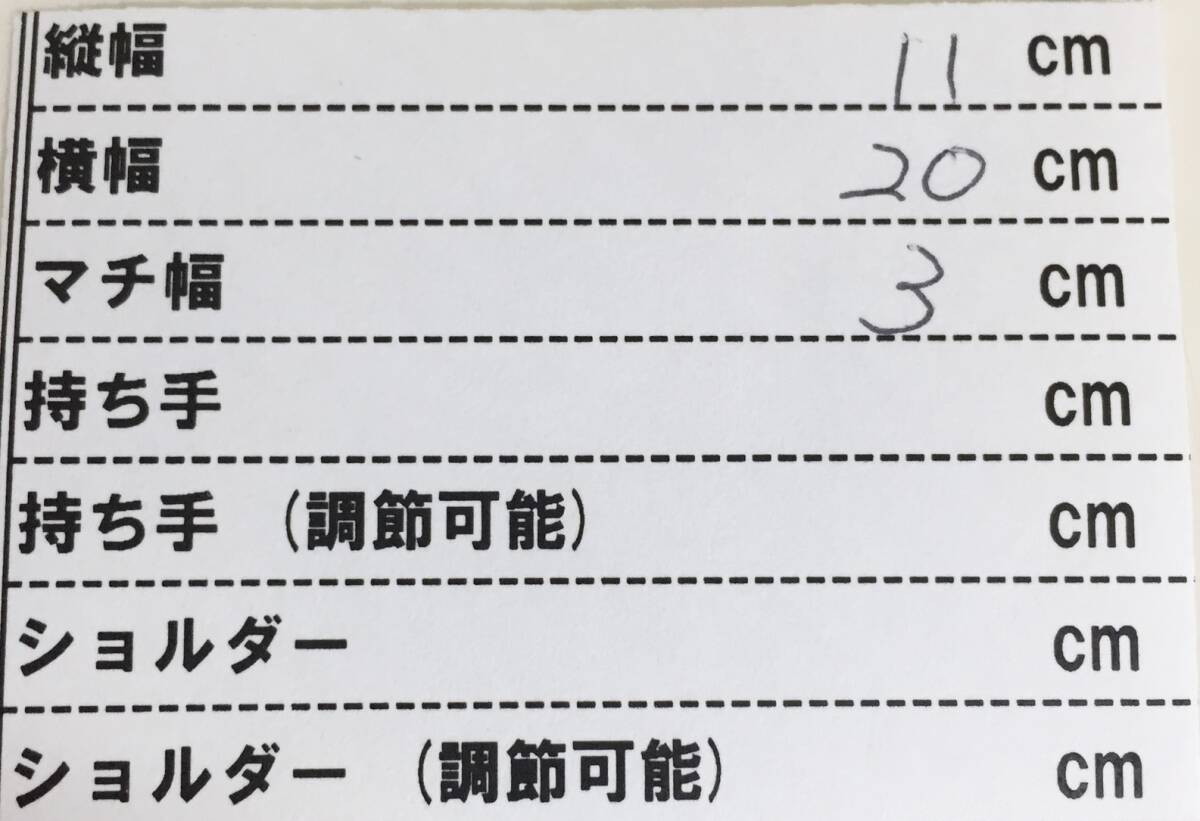 縦幅 11 cm
横幅 20 cm
マチ幅 3 cm
持ち手 cm
持ち手 (調節可能) cm
ショルダー cm
ショルダー (調節可能) cm